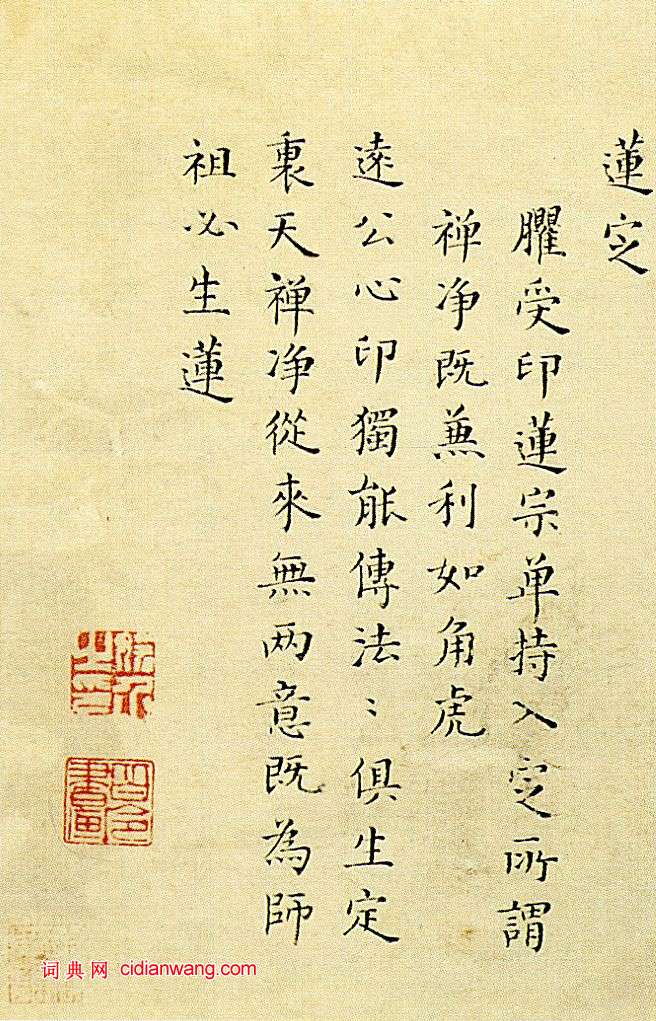 蓮㝎
臞受印蓮宗单持入㝎所謂
禅净既兼利如角虎
遠公心印獨能傳法〻俱生定
裏天禅净從來無两意既為師
祖必生蓮
词典网 cidianwang.com